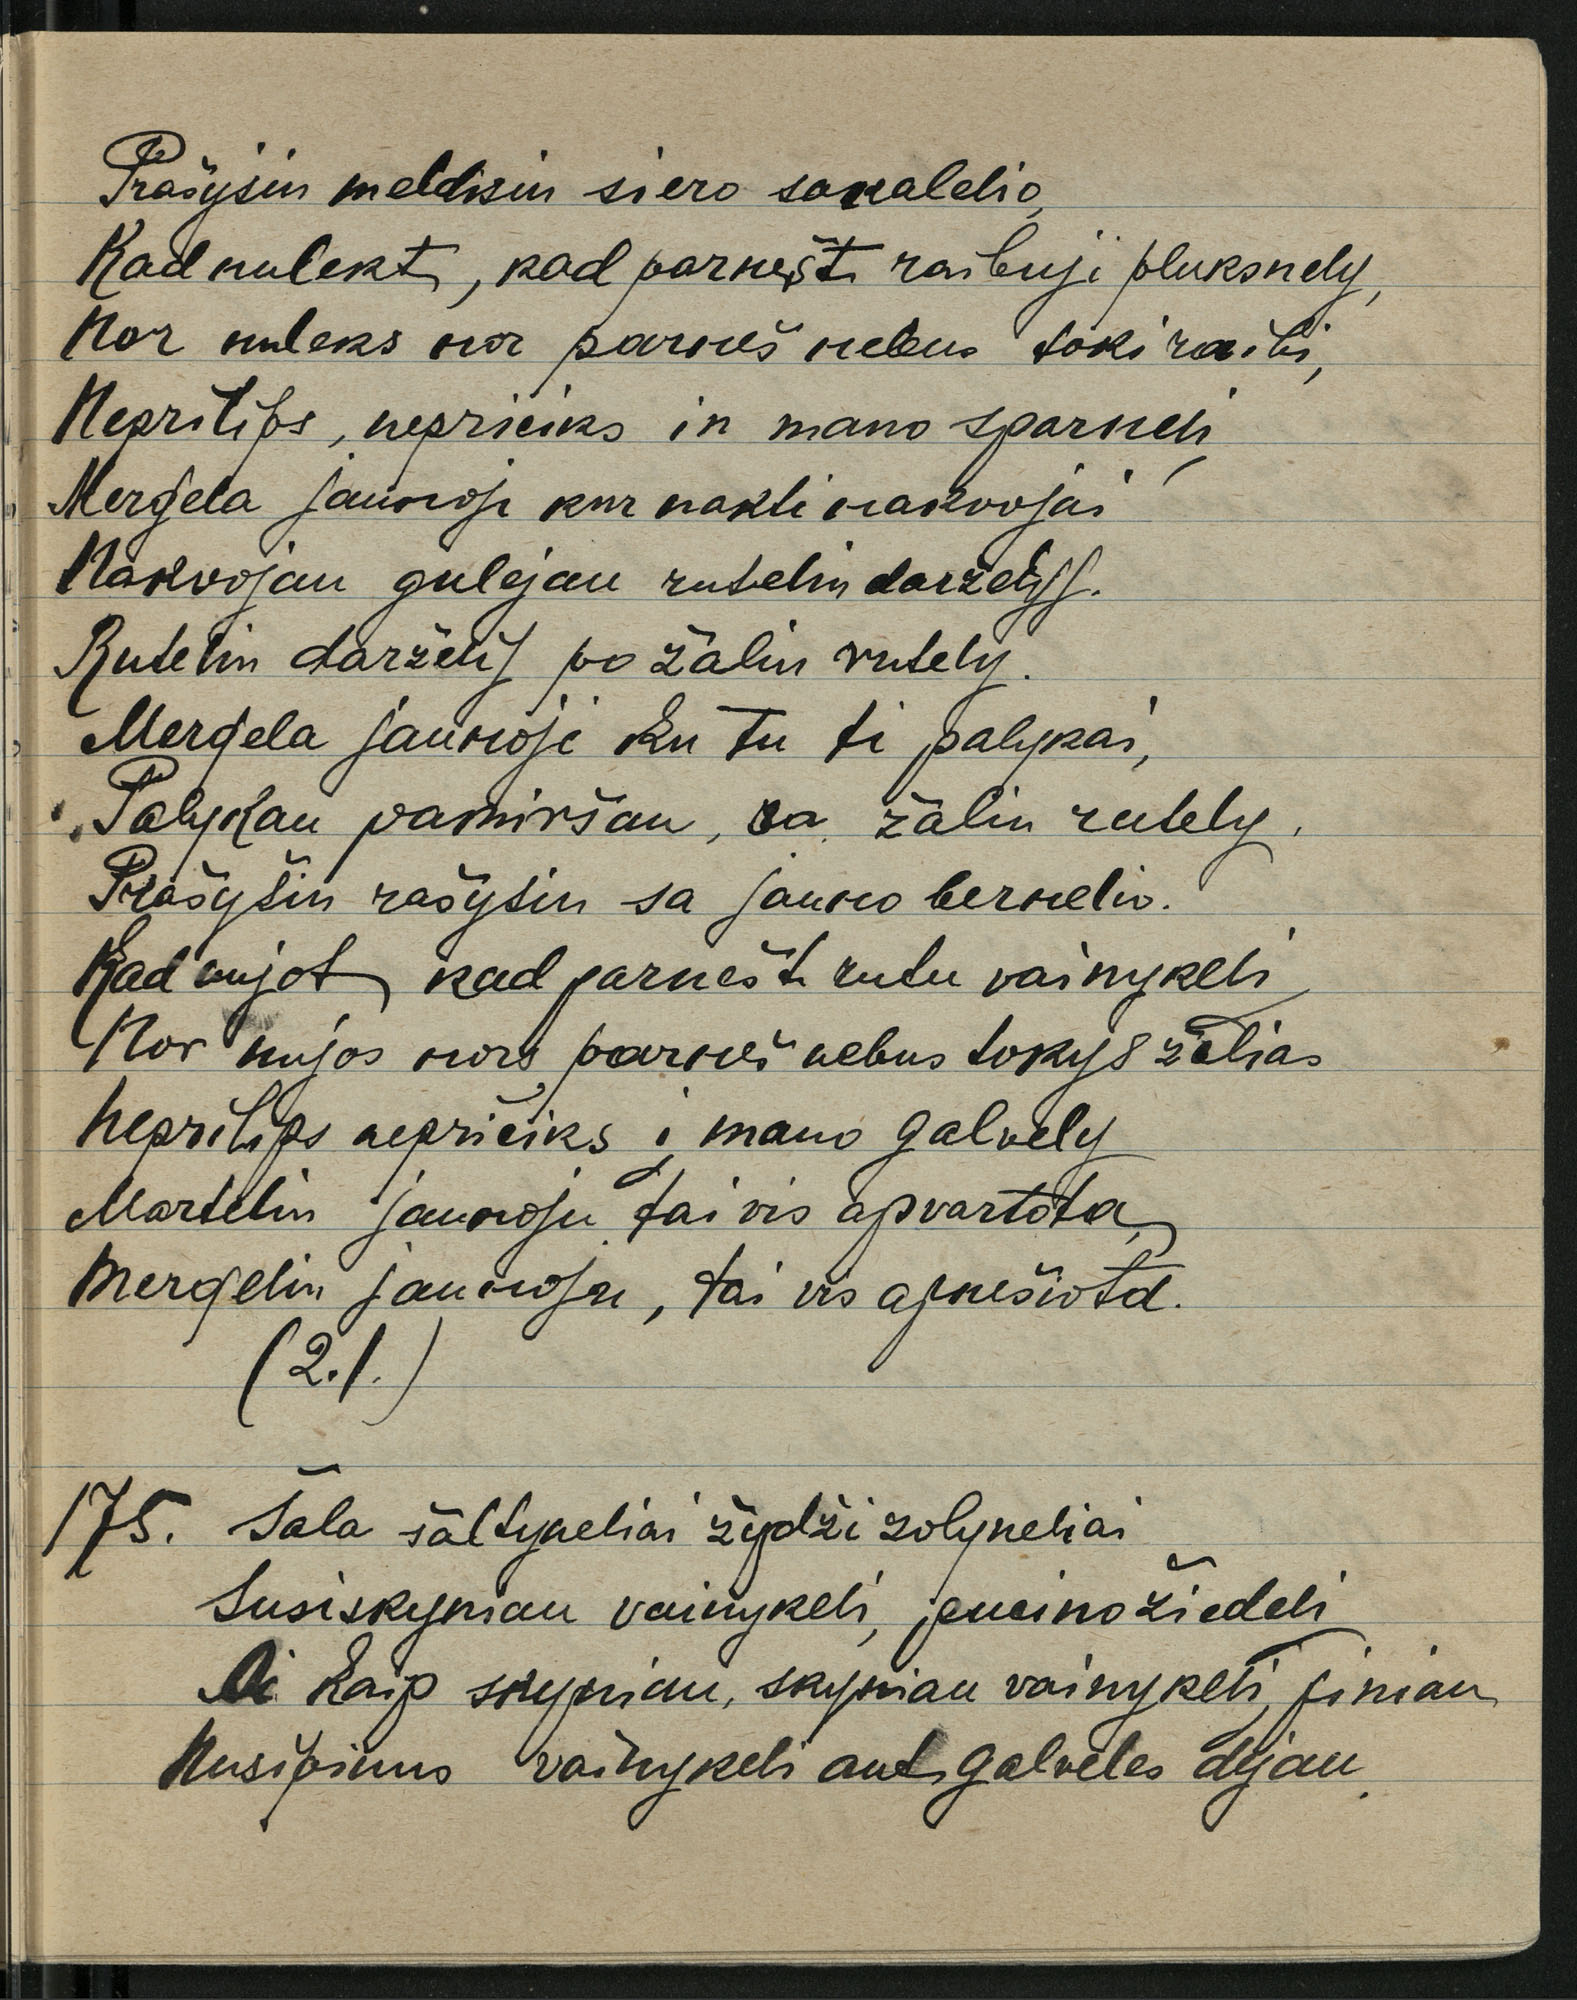 Prašysin meldisin siero sakalelio,
Kad nulekt, kad parnešt raibuji pluksnely,
Nor nuleks nor parneš nebus toki raibi,
Neprilips, nepriciks in mano sparneli,
Mergela jaunoji kur nakti nakvojai
Nakvojau gulejau rutelin darželyj.
Rutelin darželij po žalin rutely.
Mergela jaunoji ku tu ti palykai,
Palykau pamiršau, sa žalin rutely.
Prašyšin rašyšin sa jauno bernelio.
Kad nujot kad parnešt rutu vainykeli
Nor nujos nors parneš nebus tokys žalias
neprilips nepričiks į mano galvely
Martelin jaunoju tai vis apvartota,
Mergelin jaunoju, tai vis apnešiota.
(2.1.)
175. Šala šaltyneliai žydži zolyneliai
Susiskyniau vainykeli, pucino žiedeli
Oi kaip skyniau, skyniau vainykeli, piniau
Nusipinus vainykeli ant galveles dėjau.